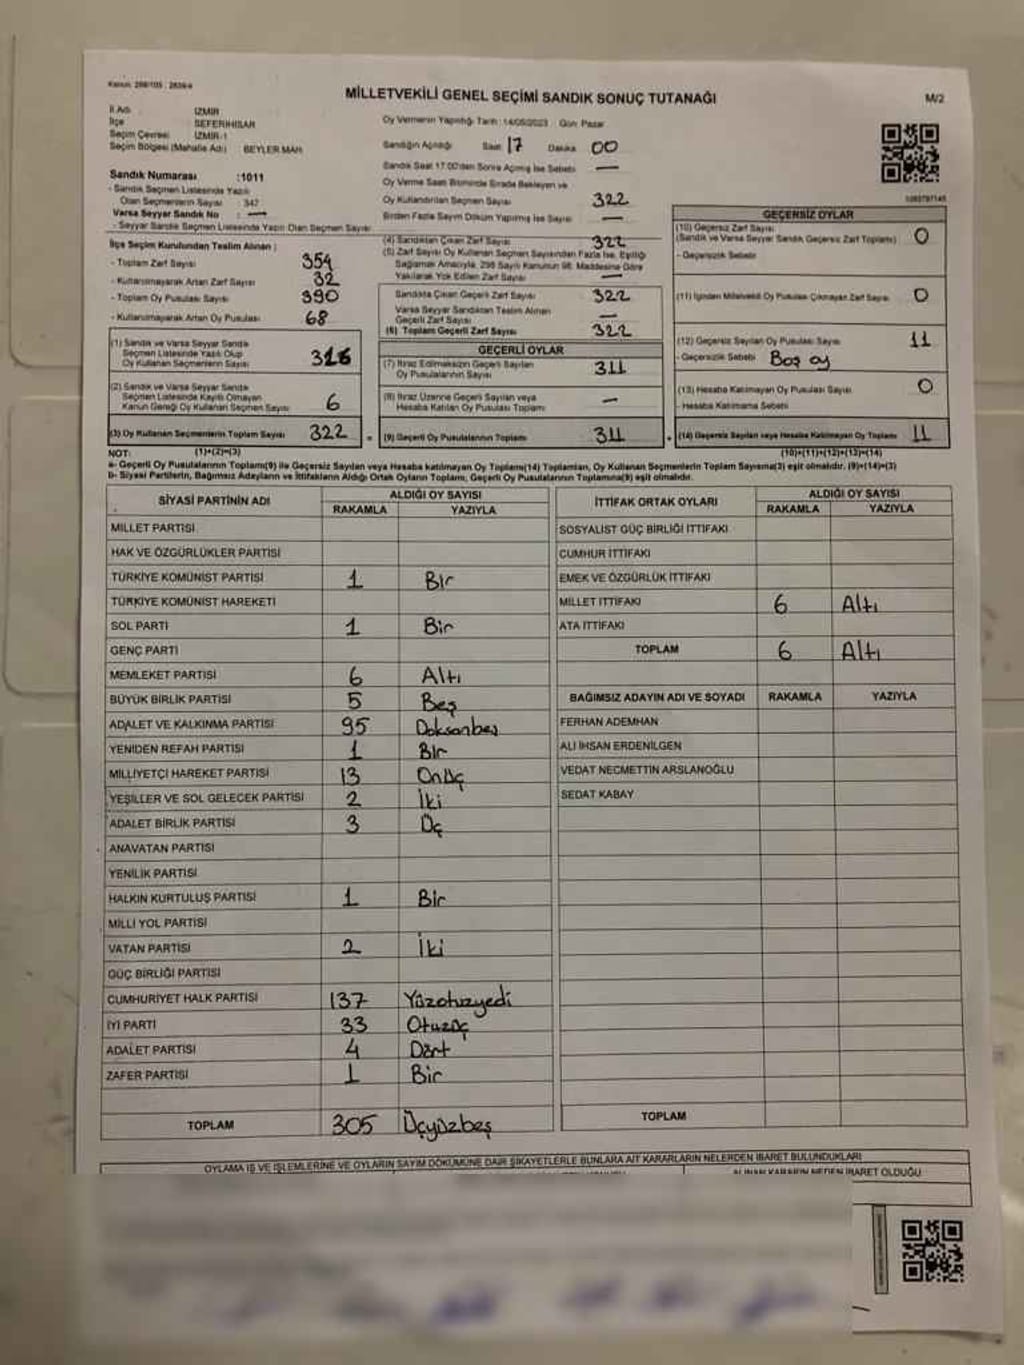 Kanun: 298/105 : 2839/4
MİLLETVEKİLİ GENEL SEÇİMİ SANDIK SONUÇ TUTANAĞI
M/2
İl Adı : İZMİR
İlçe : SEFERİHİSAR
Seçim Çevresi : İZMİR-1
Seçim Bölgesi (Mahalle Adı) : BEYLER MAH.
Sandık Numarası :1011
- Sandık Seçmen Listesinde Yazılı
Olan Seçmenlerin Sayısı : 347
Varsa Seyyar Sandık No : —
- Seyyar Sandık Seçmen Listesinde Yazılı Olan Seçmen Sayısı:
İlçe Seçim Kurulundan Teslim Alınan :
- Toplam Zarf Sayısı 354
- Kullanılmayarak Artan Zarf Sayısı 32
- Toplam Oy Pusulası Sayısı 390
- Kullanılmayarak Artan Oy Pusulası 68
(1) Sandık ve Varsa Seyyar Sandık
Seçmen Listesinde Yazılı Olup
Oy Kullanan Seçmenlerin Sayısı 316
(2) Sandık ve Varsa Seyyar Sandık
Seçmen Listesinde Kayıtlı Olmayan
Kanun Gereği Oy Kullanan Seçmen Sayısı 6
(3) Oy Kullanan Seçmenlerin Toplam Sayısı 322
Oy Vermenin Yapıldığı Tarih: 14/05/2023 Gün: Pazar
Sandığın Açıldığı Saat 17 Dakika 00
Sandık Saat 17:00'den Sonra Açılmış İse Sebebi —
Oy Verme Saati Bitiminde Sırada Bekleyen ve
Oy Kullandırılan Seçmen Sayısı 322
Birden Fazla Sayım Döküm Yapılmış İse Sayısı —
(4) Sandıktan Çıkan Zarf Sayısı 322
(5) Zarf Sayısı Oy Kullanan Seçmen Sayısından Fazla İse, Eşitliği
Sağlamak Amacıyla, 298 Sayılı Kanunun 98. Maddesine Göre
Yakılarak Yok Edilen Zarf Sayısı —
Sandıkta Çıkan Geçerli Zarf Sayısı 322
Varsa Seyyar Sandıktan Teslim Alınan
Geçerli Zarf Sayısı —
(6) Toplam Geçerli Zarf Sayısı 322
GEÇERLİ OYLAR
(7) İtiraz Edilmeksizin Geçerli Sayılan
Oy Pusulalarının Sayısı 311
(8) İtiraz Üzerine Geçerli Sayılan veya
Hesaba Katılan Oy Pusulası Toplamı —
= (9) Geçerli Oy Pusulalarının Toplamı 311
GEÇERSİZ OYLAR
(10) Geçersiz Zarf Sayısı
(Sandık ve Varsa Seyyar Sandık Geçersiz Zarf Toplamı) 0
- Geçersizlik Sebebi
(11) İçinden Milletvekili Oy Pusulası Çıkmayan Zarf Sayısı 0
(12) Geçersiz Sayılan Oy Pusulası Sayısı 11
- Geçersizlik Sebebi Boş oy
(13) Hesaba Katılmayan Oy Pusulası Sayısı 0
- Hesaba Katılmama Sebebi
+ (14) Geçersiz Sayılan veya Hesaba Katılmayan Oy Toplamı 11
NOT: (1)+(2)=(3) (10)+(11)+(12)+(13)=(14)
a- Geçerli Oy Pusulalarının Toplamı(9) ile Geçersiz Sayılan veya Hesaba katılmayan Oy Toplamı(14) Toplamları, Oy Kullanan Seçmenlerin Toplam Sayısına(3) eşit olmalıdır. (9)+(14)=(3)
b- Siyasi Partilerin, Bağımsız Adayların ve İttifakların Aldığı Ortak Oyların Toplamı; Geçerli Oy Pusulalarının Toplamına(9) eşit olmalıdır.
SİYASİ PARTİNİN ADI ALDIĞI OY SAYISI
RAKAMLA YAZIYLA
MİLLET PARTİSİ
HAK VE ÖZGÜRLÜKLER PARTİSİ
TÜRKİYE KOMÜNİST PARTİSİ 1 Bir
TÜRKİYE KOMÜNİST HAREKETİ
SOL PARTİ 1 Bir
GENÇ PARTİ
MEMLEKET PARTİSİ 6 Altı
BÜYÜK BİRLİK PARTİSİ 5 Beş
ADALET VE KALKINMA PARTİSİ 95 Doksanbeş
YENİDEN REFAH PARTİSİ 1 Bir
MİLLİYETÇİ HAREKET PARTİSİ 13 Onüç
YEŞİLLER VE SOL GELECEK PARTİSİ 2 İki
ADALET BİRLİK PARTİSİ 3 Üç
ANAVATAN PARTİSİ
YENİLİK PARTİSİ
HALKIN KURTULUŞ PARTİSİ 1 Bir
MİLLİ YOL PARTİSİ
VATAN PARTİSİ 2 İki
GÜÇ BİRLİĞİ PARTİSİ
CUMHURİYET HALK PARTİSİ 137 Yüzotuzyedi
İYİ PARTİ 33 Otuzüç
ADALET PARTİSİ 4 Dört
ZAFER PARTİSİ 1 Bir
TOPLAM 305 Üçyüzbeş
İTTİFAK ORTAK OYLARI ALDIĞI OY SAYISI
RAKAMLA YAZIYLA
SOSYALİST GÜÇ BİRLİĞİ İTTİFAKI
CUMHUR İTTİFAKI
EMEK VE ÖZGÜRLÜK İTTİFAKI
MİLLET İTTİFAKI 6 Altı
ATA İTTİFAKI
TOPLAM 6 Altı
BAĞIMSIZ ADAYIN ADI VE SOYADI RAKAMLA YAZIYLA
FERHAN ADEMHAN
ALİ İHSAN ERDENİLGEN
VEDAT NECMETTİN ARSLANOĞLU
SEDAT KABAY
TOPLAM
OYLAMA İŞ VE İŞLEMLERİNE VE OYLARIN SAYIM DÖKÜMÜNE DAİR ŞİKAYETLERLE BUNLARA AİT KARARLARIN NELERDEN İBARET BULUNDUKLARI
ALINAN KARARIN NEDEN İBARET OLDUĞU